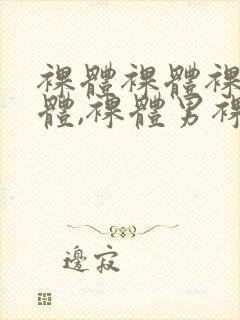 裸體裸體裸
體,裸體男裸
邊寂